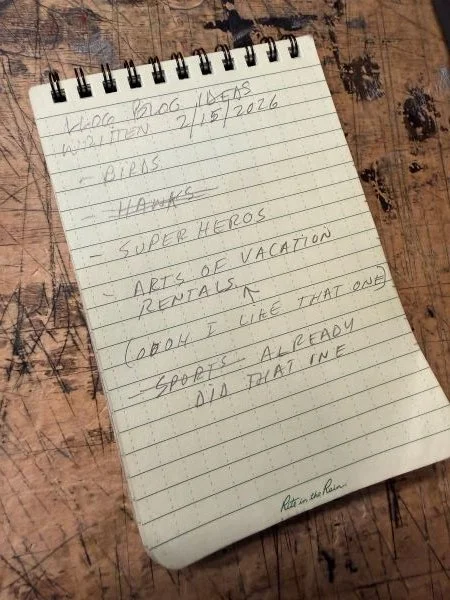 VLOG BLOG IDEAS
WRITTEN 2/15/2026
- BIRDS
- HAWKS
- SUPER HEROS
- ARTS OF VACATION
RENTALS ↖
(OOOH I LIKE THAT ONE)
- SPORTS ALREADY
DID THAT INE
Rite in the Rain